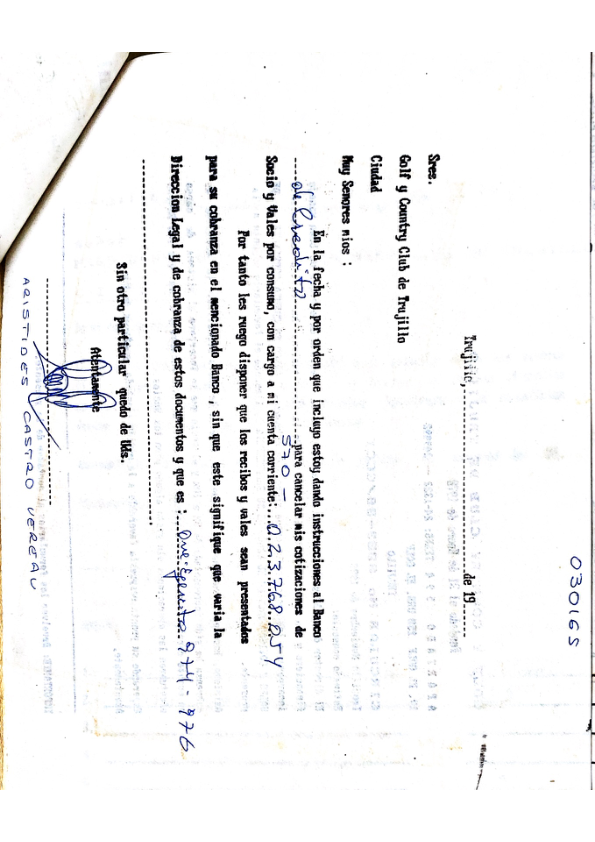 030165
Trujillo,....................de 19.........
Sres.
Golf y Country Club de Trujillo
Ciudad
Muy Senores mios :
En la fecha y por orden que incluyo estoy dando instrucciones al Banco
de Credito para cancelar mis cotizaciones de
570 -
Socio y Vales por consumo, con cargo a mi cuenta corriente:..0.2.3.768.254
Por tanto les ruego disponer que los recibos y vales sean presentados
para su cobranza en el mencionado Banco, sin que este signifique que varia la
Direccion Legal y de cobranza de estos documentos y que es : 974 - 976
Sin otro particular quedo de Uds.
Atentamente
ARISTIDES CASTRO VEREAU